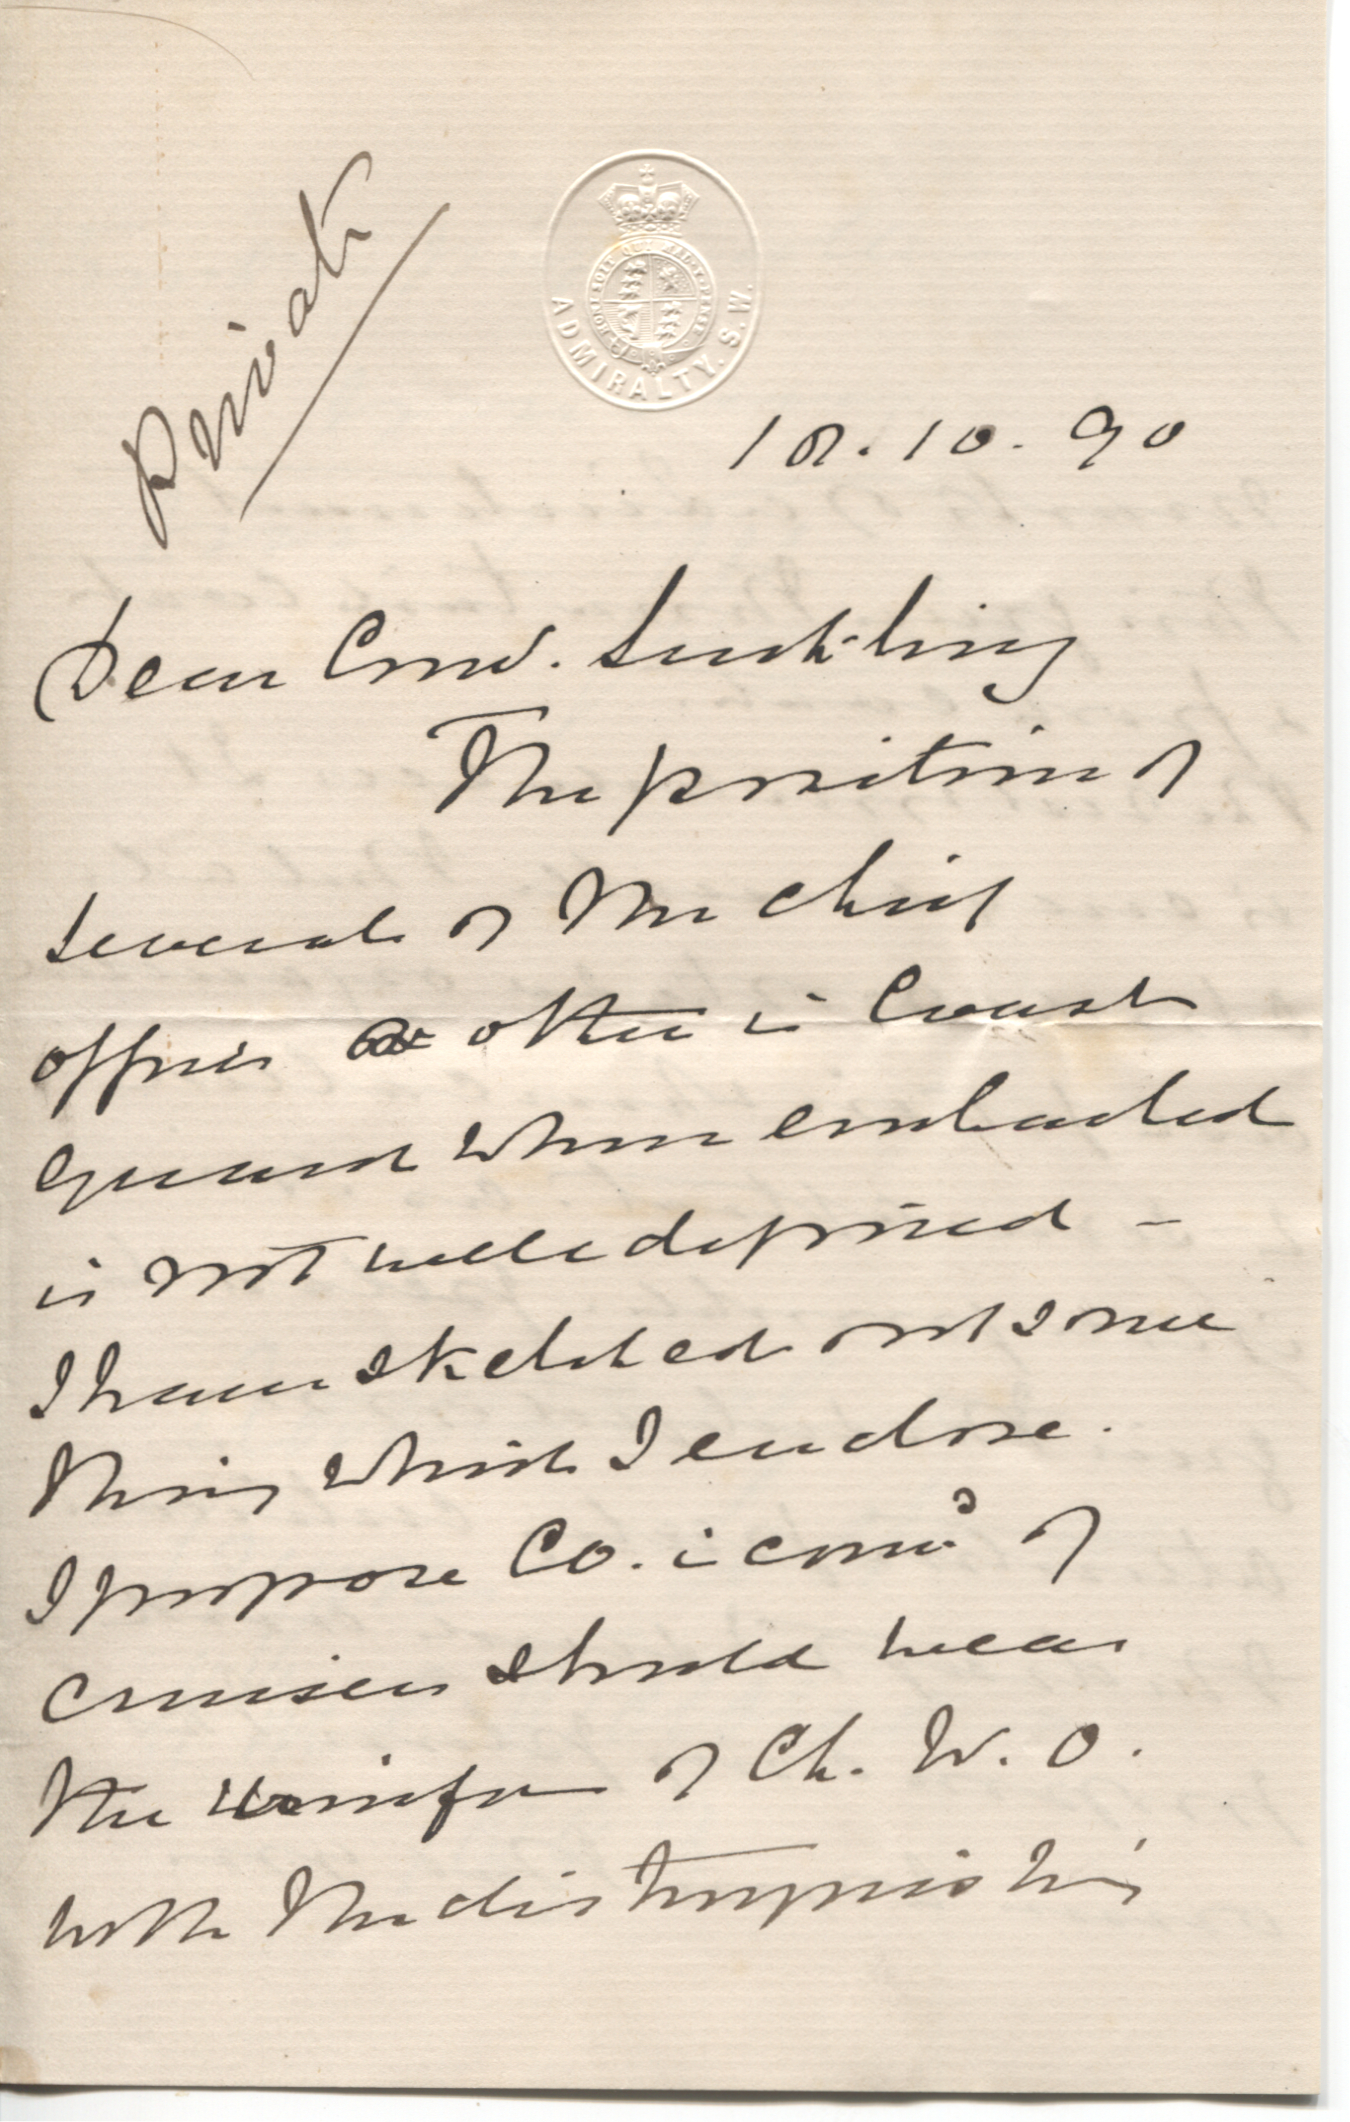 Private
HONI SOIT QUI MAL Y PENSE
ADMIRALTY. S. W.
18.10.90
Dear Comd. Suckling
The position of
several of the chief
officers & others in Coast
Guard when embarked
is not well defined –
I have sketched out some
thing which I enclose.
I propose C.O. in comd of
cruisers should wear
the uniform of Ch. W. O.
with the distinguishing